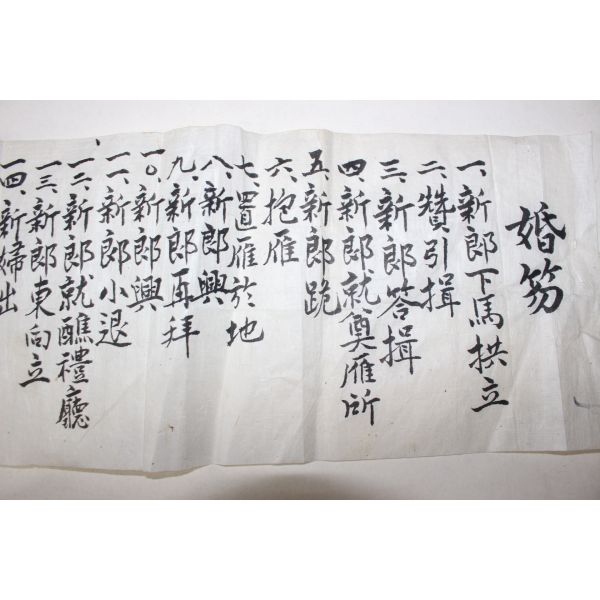 婚笏
一、新郎下馬拱立
二、贊引揖
三、新郎答揖
四、新郎就奠雁所
五、新郎跪
六、抱雁
七、置雁於地
八、新郎興
九、新郎再拜
一〇、新郎興
一一、新郎小退
一二、新郎就醮禮廳
一三、新郎東向立
一四、新婦出